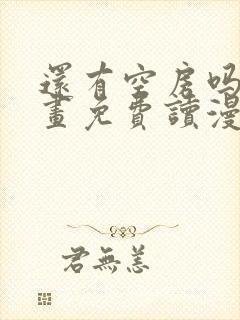 還有空房吗
畫免費讀漫
君無恙